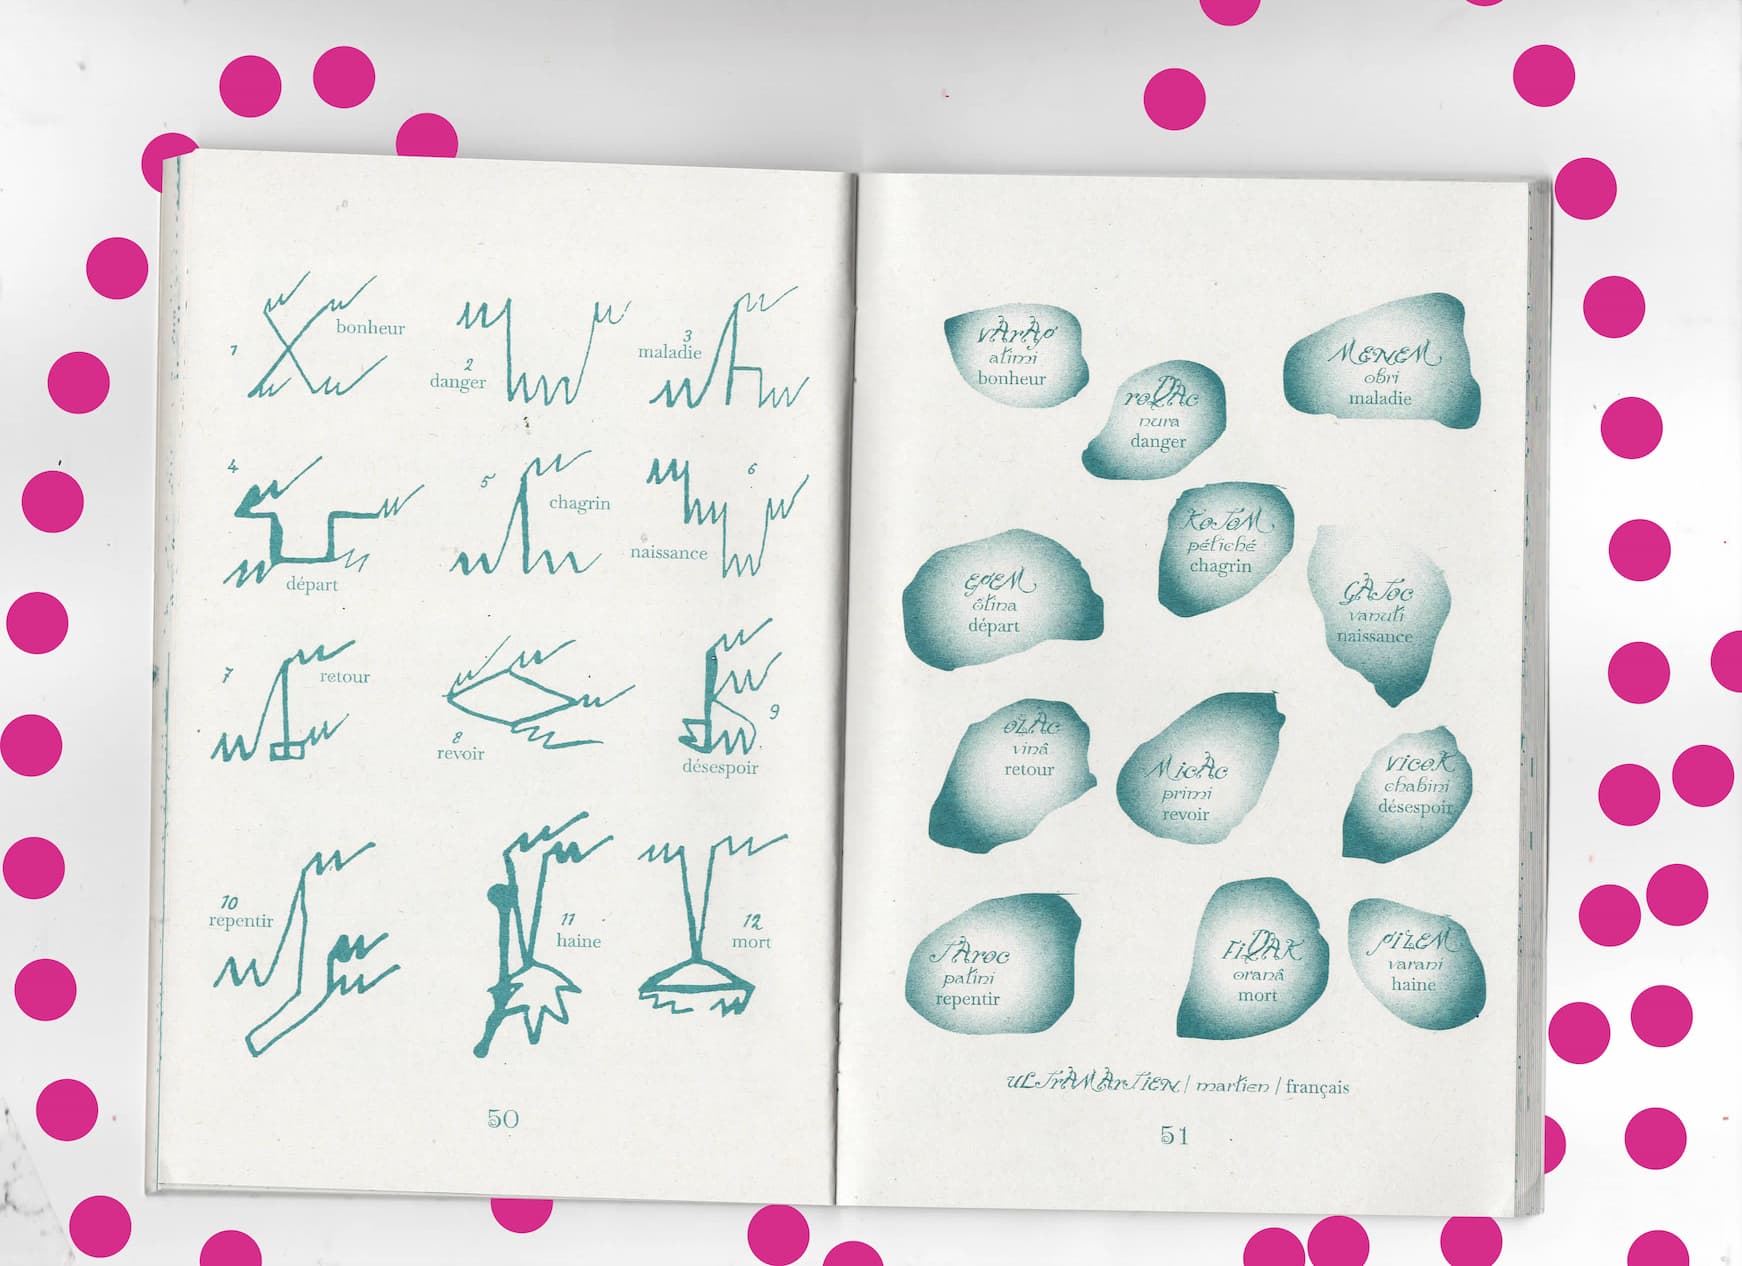 1
bonheur
2
danger
3
maladie
4
départ
5
chagrin
6
naissance
7
retour
8
revoir
9
désespoir
10
repentir
11
haine
12
mort
50
vArAp
atimi
bonheur
roDAc
nura
danger
MENEM
obri
maladie
EpEM
ôtina
départ
KoToM
pétiché
chagrin
vanuti
naissance
oLAc
vinâ
retour
MicAc
primi
revoir
vicoK
chabini
désespoir
TAroc
patini
repentir
FiDAK
oranâ
mort
piZEM
varani
haine
ULTrAMArTiEN / martien / français
51